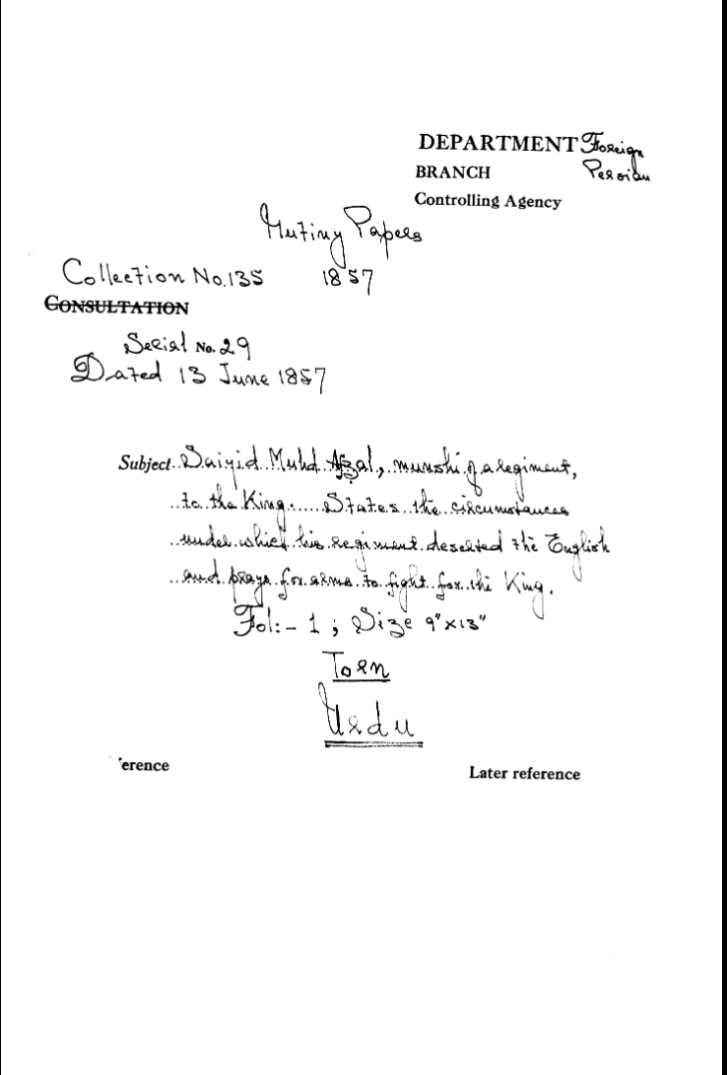 DEPARTMENT Foreign
BRANCH Persian
Controlling Agency
Mutiny Papers
Collection No. 135 1857
CONSULTATION
Serial No. 29
Dated 13 June 1857
Subject Saiyid Muhd Afzal, munshi of a regiment,
to the King. States the circumstances
under which his regiment deserted the English
and prays for arms to fight for the King.
Fol:- 1 ; Size 9"x13"
Torn
Urdu
erence
Later reference